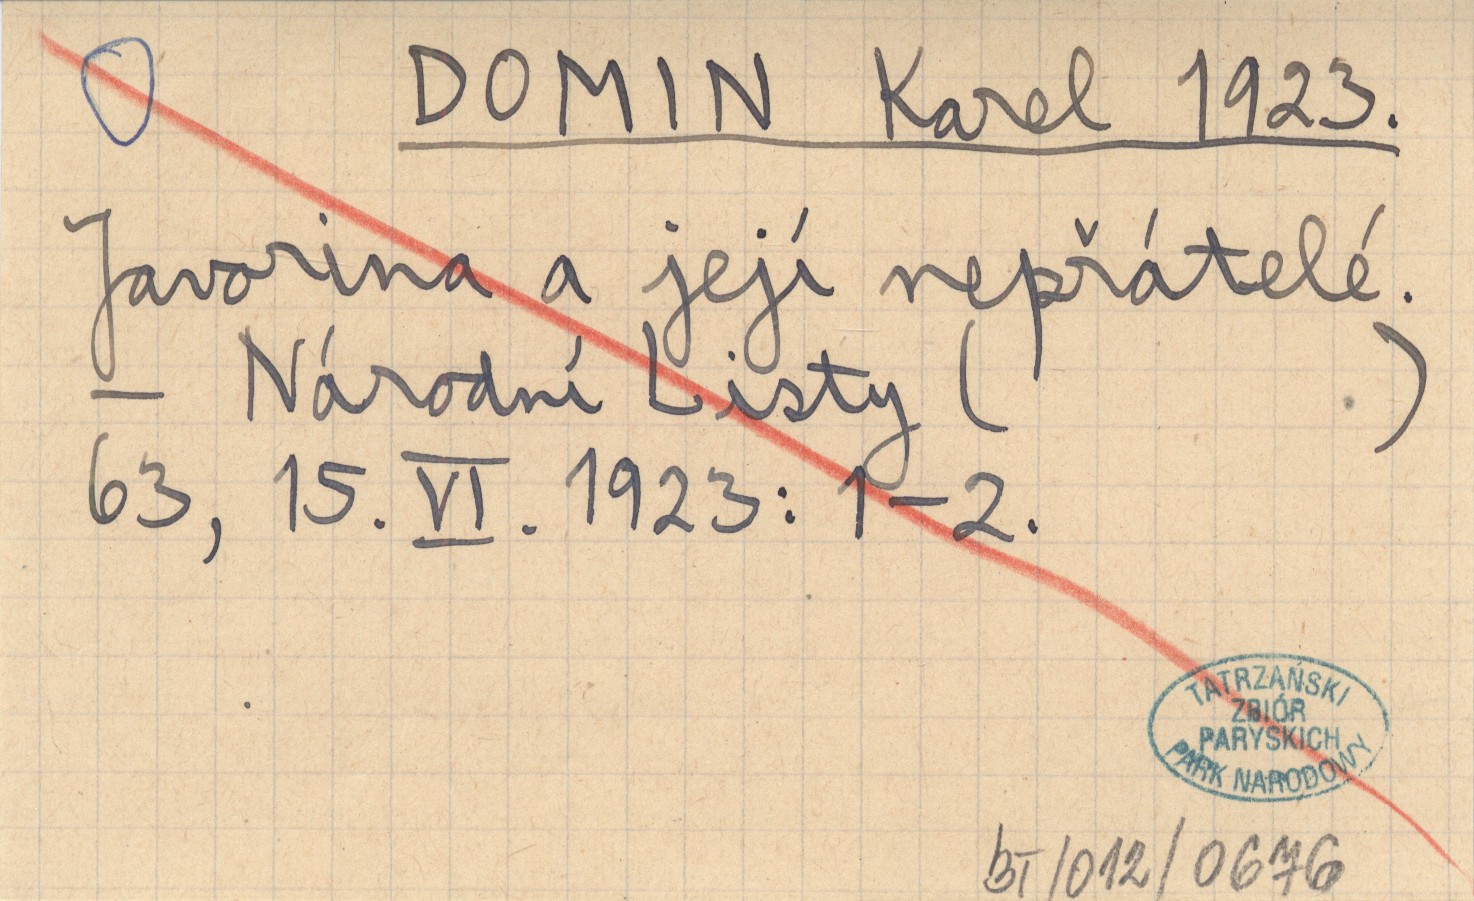 DOMIN Karel 1923.
Javorina a její nepřátelé.
— Národní Listy ( .)
63, 15. VI. 1923: 1-2.
TATRZAŃSKI
ZBIÓR
PARYSKICH
PARK NARODOWY
BT/012/0676